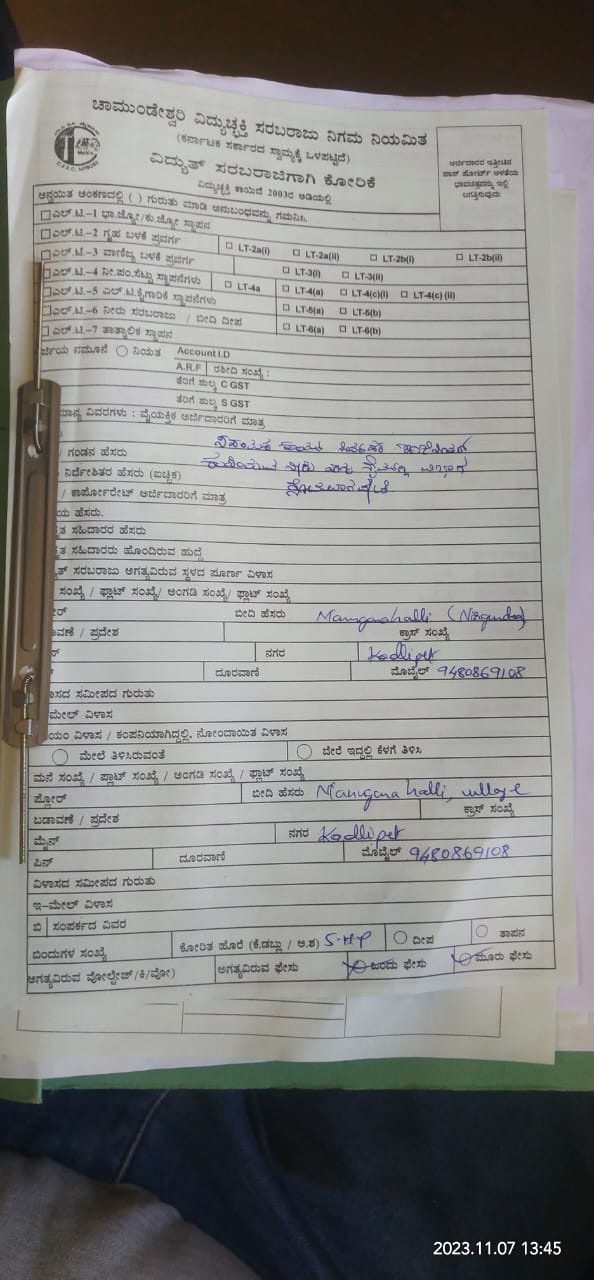 ಚಾಮುಂಡೇಶ್ವರಿ ವಿದ್ಯುಚ್ಛಕ್ತಿ ಸರಬರಾಜು ನಿಗಮ ನಿಯಮಿತ
(ಕರ್ನಾಟಕ ಸರ್ಕಾರದ ಸ್ವಾಮ್ಯಕ್ಕೆ ಒಳಪಟ್ಟಿದೆ)
ವಿದ್ಯುತ್ ಸರಬರಾಜಿಗಾಗಿ ಕೋರಿಕೆ
ವಿದ್ಯುಚ್ಛಕ್ತಿ ಕಾಯಿದೆ 2003ರ ಅಡಿಯಲ್ಲಿ
ಅರ್ಜಿದಾರರ ಇತ್ತೀಚಿನ
ಪಾಸ್ ಪೋರ್ಟ್ ಅಳತೆಯ
ಭಾವಚಿತ್ರವನ್ನು ಇಲ್ಲಿ
ಲಗತ್ತಿಸುವುದು
ಅನ್ವಯಿತ ಅಂಕಣದಲ್ಲಿ ( ) ಗುರುತು ಮಾಡಿ ಅನುಬಂಧವನ್ನು ಗಮನಿಸಿ.
ಎಲ್.ಟಿ.-1 ಭಾ.ಜ್ಯೋ/ಕು.ಜ್ಯೋ ಸ್ಥಾಪನ
ಎಲ್.ಟಿ.-2 ಗೃಹ ಬಳಕೆ ಪ್ರವರ್ಗ LT-2a(i) LT-2a(ii) LT-2b(i) LT-2b(ii)
ಎಲ್.ಟಿ.-3 ವಾಣಿಜ್ಯ ಬಳಕೆ ಪ್ರವರ್ಗ LT-3(i) LT-3(ii)
ಎಲ್.ಟಿ.-4 ನೀ.ಪಂ.ಸೆಟ್ಟು ಸ್ಥಾಪನೆಗಳು LT-4a LT-4(a) LT-4(c)(i) LT-4(c) (ii)
ಎಲ್.ಟಿ.-5 ಎಲ್.ಟಿ.ಕೈಗಾರಿಕೆ ಸ್ಥಾಪನೆಗಳು LT-5(a) LT-5(b)
ಎಲ್.ಟಿ.-6 ನೀರು ಸರಬರಾಜು / ಬೀದಿ ದೀಪ LT-6(a) LT-6(b)
ಎಲ್.ಟಿ.-7 ತಾತ್ಕಾಲಿಕ ಸ್ಥಾಪನ
ರ್ಜಿಯ ನಮೂನೆ ನಿಯತ Account I.D
A.R.F ರಶೀದಿ ಸಂಖ್ಯೆ :
ತೆರಿಗೆ ಶುಲ್ಕ C GST
ತೆರಿಗೆ ಶುಲ್ಕ S GST
ಮಾನ್ಯ ವಿವರಗಳು : ವೈಯಕ್ತಿಕ ಅರ್ಜಿದಾರರಿಗೆ ಮಾತ್ರ
/ ಗಂಡನ ಹೆಸರು
ನಿರ್ದೇಶಿತರ ಹೆಸರು (ಐಚ್ಛಿಕ)
/ ಕಾರ್ಪೋರೇಟ್ ಅರ್ಜಿದಾರರಿಗೆ ಮಾತ್ರ
ಯ ಹೆಸರು.
ೃತ ಸಹಿದಾರರ ಹೆಸರು
ೃತ ಸಹಿದಾರರು ಹೊಂದಿರುವ ಹುದ್ದೆ
ತ್ ಸರಬರಾಜು ಅಗತ್ಯವಿರುವ ಸ್ಥಳದ ಪೂರ್ಣ ವಿಳಾಸ
ಸಂಖ್ಯೆ / ಫ್ಲಾಟ್ ಸಂಖ್ಯೆ/ ಅಂಗಡಿ ಸಂಖ್ಯೆ/ ಫ್ಲಾಟ್ ಸಂಖ್ಯೆ
ೀರ್ ಬೀದಿ ಹೆಸರು Managanahalli (Nirgunda)
ಾವಣೆ / ಪ್ರದೇಶ ಕ್ರಾಸ್ ಸಂಖ್ಯೆ
ನಗರ Kodlipet
ದೂರವಾಣಿ ಮೊಬೈಲ್ 9480869108
ಾಸದ ಸಮೀಪದ ಗುರುತು
ಮೇಲ್ ವಿಳಾಸ
ಯಂ ವಿಳಾಸ / ಕಂಪನಿಯಾಗಿದ್ದಲ್ಲಿ, ನೋಂದಾಯಿತ ವಿಳಾಸ
ಮೇಲೆ ತಿಳಿಸಿರುವಂತೆ ಬೇರೆ ಇದ್ದಲ್ಲಿ ಕೆಳಗೆ ತಿಳಿಸಿ
ಮನೆ ಸಂಖ್ಯೆ / ಪ್ಲಾಟ್ ಸಂಖ್ಯೆ / ಅಂಗಡಿ ಸಂಖ್ಯೆ / ಫ್ಲಾಟ್ ಸಂಖ್ಯೆ
ಫ್ಲೋರ್ ಬೀದಿ ಹೆಸರು Managanahalli, village
ಬಡಾವಣೆ / ಪ್ರದೇಶ ಕ್ರಾಸ್ ಸಂಖ್ಯೆ
ಮೈನ್ ನಗರ Kodlipet
ಪಿನ್ ದೂರವಾಣಿ ಮೊಬೈಲ್ 9480869108
ವಿಳಾಸದ ಸಮೀಪದ ಗುರುತು
ಇ-ಮೇಲ್ ವಿಳಾಸ
ಬಿ ಸಂಪರ್ಕದ ವಿವರ
ಬಿಂದುಗಳ ಸಂಖ್ಯೆ ಕೋರಿತ ಹೊರೆ (ಕೆ.ಡಬ್ಲು / ಅ.ಶ) 5-HP ದೀಪ ತಾಪನ
ಅಗತ್ಯವಿರುವ ವೋಲ್ಟೇಜ್/ಕಿ/ವೋ) ಅಗತ್ಯವಿರುವ ಫೇಸು ಒಂದು ಫೇಸು ಮೂರು ಫೇಸು
2023.11.07 13:45